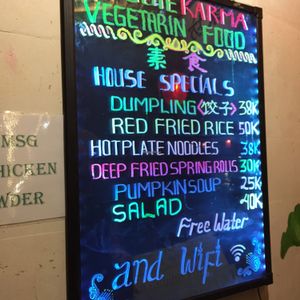 KARMA
VEGETARIN FOOD
素食
HOUSE SPECIALS
DUMPLING<饺子> 38K
RED FRIED RICE 50K
HOTPLATE NOODLES 38K
DEEP FRIED SPRING ROLLS 30K
PUMPKIN SOUP 25K
SALAD 40K
Free Water
and Wifi
MSG